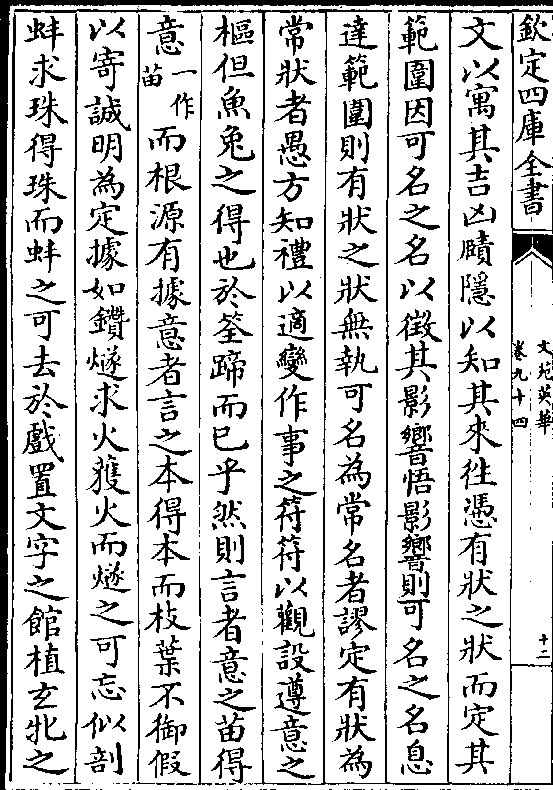 欽定四庫全書
文苑英華
卷九十四
十二
文以寓其吉凶賾隱以知其來徃憑有狀之狀而定其
範圍因可名之名以徴其影響悟影響則可名之名息
達範圍則有狀之狀無執可名為常名者謬定有狀為
常狀者愚方知禮以適變作事之符符以觀設遵意之
樞但魚兔之得也於筌蹄而已乎然則言者意之苗得
意一作苗而根源有據意者言之本得本而枝葉不御假
以寄誠明為定據如鑽燧求火獲火而燧之可忘似剖
蚌求珠得珠而蚌之可去於戲置文字之館植玄牝之